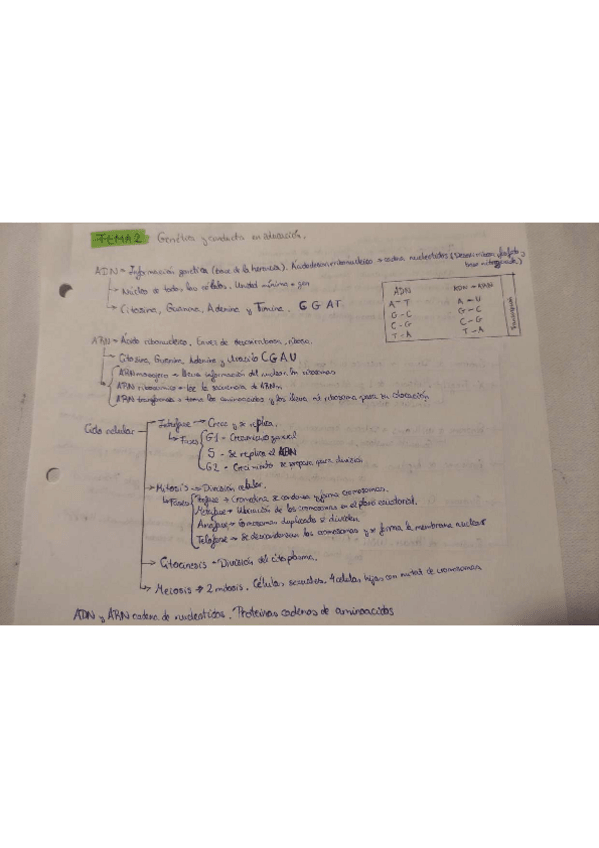 TEMA 2 Genética y conducta en educación.
ADN = Información genética (base de la herencia). Ácido desoxirribonucleico → cadena nucleótidos (Desoxirribosa, fosfato y base nitrogenada)
→ Núcleo de todas las células. Unidad mínima = gen
→ Citosina, Guanina, Adenina y Timina. C G A T
ADN
A - T
G - C
C - G
T - A
ADN → ARN
A - U
G - C
C - G
T - A
ARN = Ácido ribonucleico, En vez de desoxirribosa, ribosa.
→ Citosina, Guanina, Adenina y Uracilo C G A U
ARN mensajero → lleva información del núcleo a los ribosomas
ARN ribosómico → lee la secuencia de ARNm
ARN transferencia → toma los aminoácidos y los lleva al ribosoma para su colocación
Ciclo celular
→ Interfase → Crece y se replica.
↳ Fases
G1 - Crecimiento general
S - Se replica el ADN
G2 - Crecimiento se prepara para división
→ Mitosis → División celular.
↳ Fases
Profase → Cromatina se condensa y forma cromosomas.
Metafase → Ubicación de los cromosomas en el plano ecuatorial.
Anafase → Cromosomas duplicados se dividen
Telofase → Se descondensan los cromosomas y se forma la membrana nuclear
→ Citocinesis - División del citoplasma.
→ Meiosis → 2 mitosis. Células sexuales. 4 células hijas con mitad de cromosomas
ADN y ARN cadena de nucleótidos. Proteínas cadenas de aminoácidos